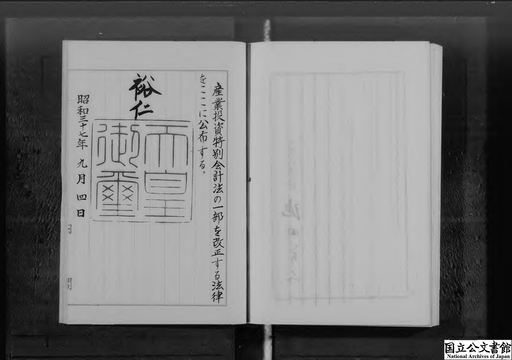 産業投資特別会計法の一部を改正する法律
をここに公布する。
裕仁
天皇
御璽
昭和三十七年九月四日
国立公文書館
National Archives of Japan